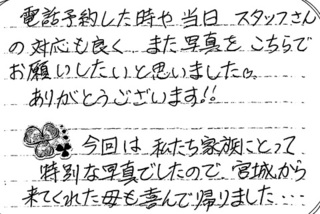 電話予約した時や当日 スタッフさん
の対応も良く また写真を こちらで
お願いしたいと思いました。
ありがとうございます!!
今回は 私たち家族にとって
特別な写真でしたので 宮城から
来てくれた母も喜んで帰りました…